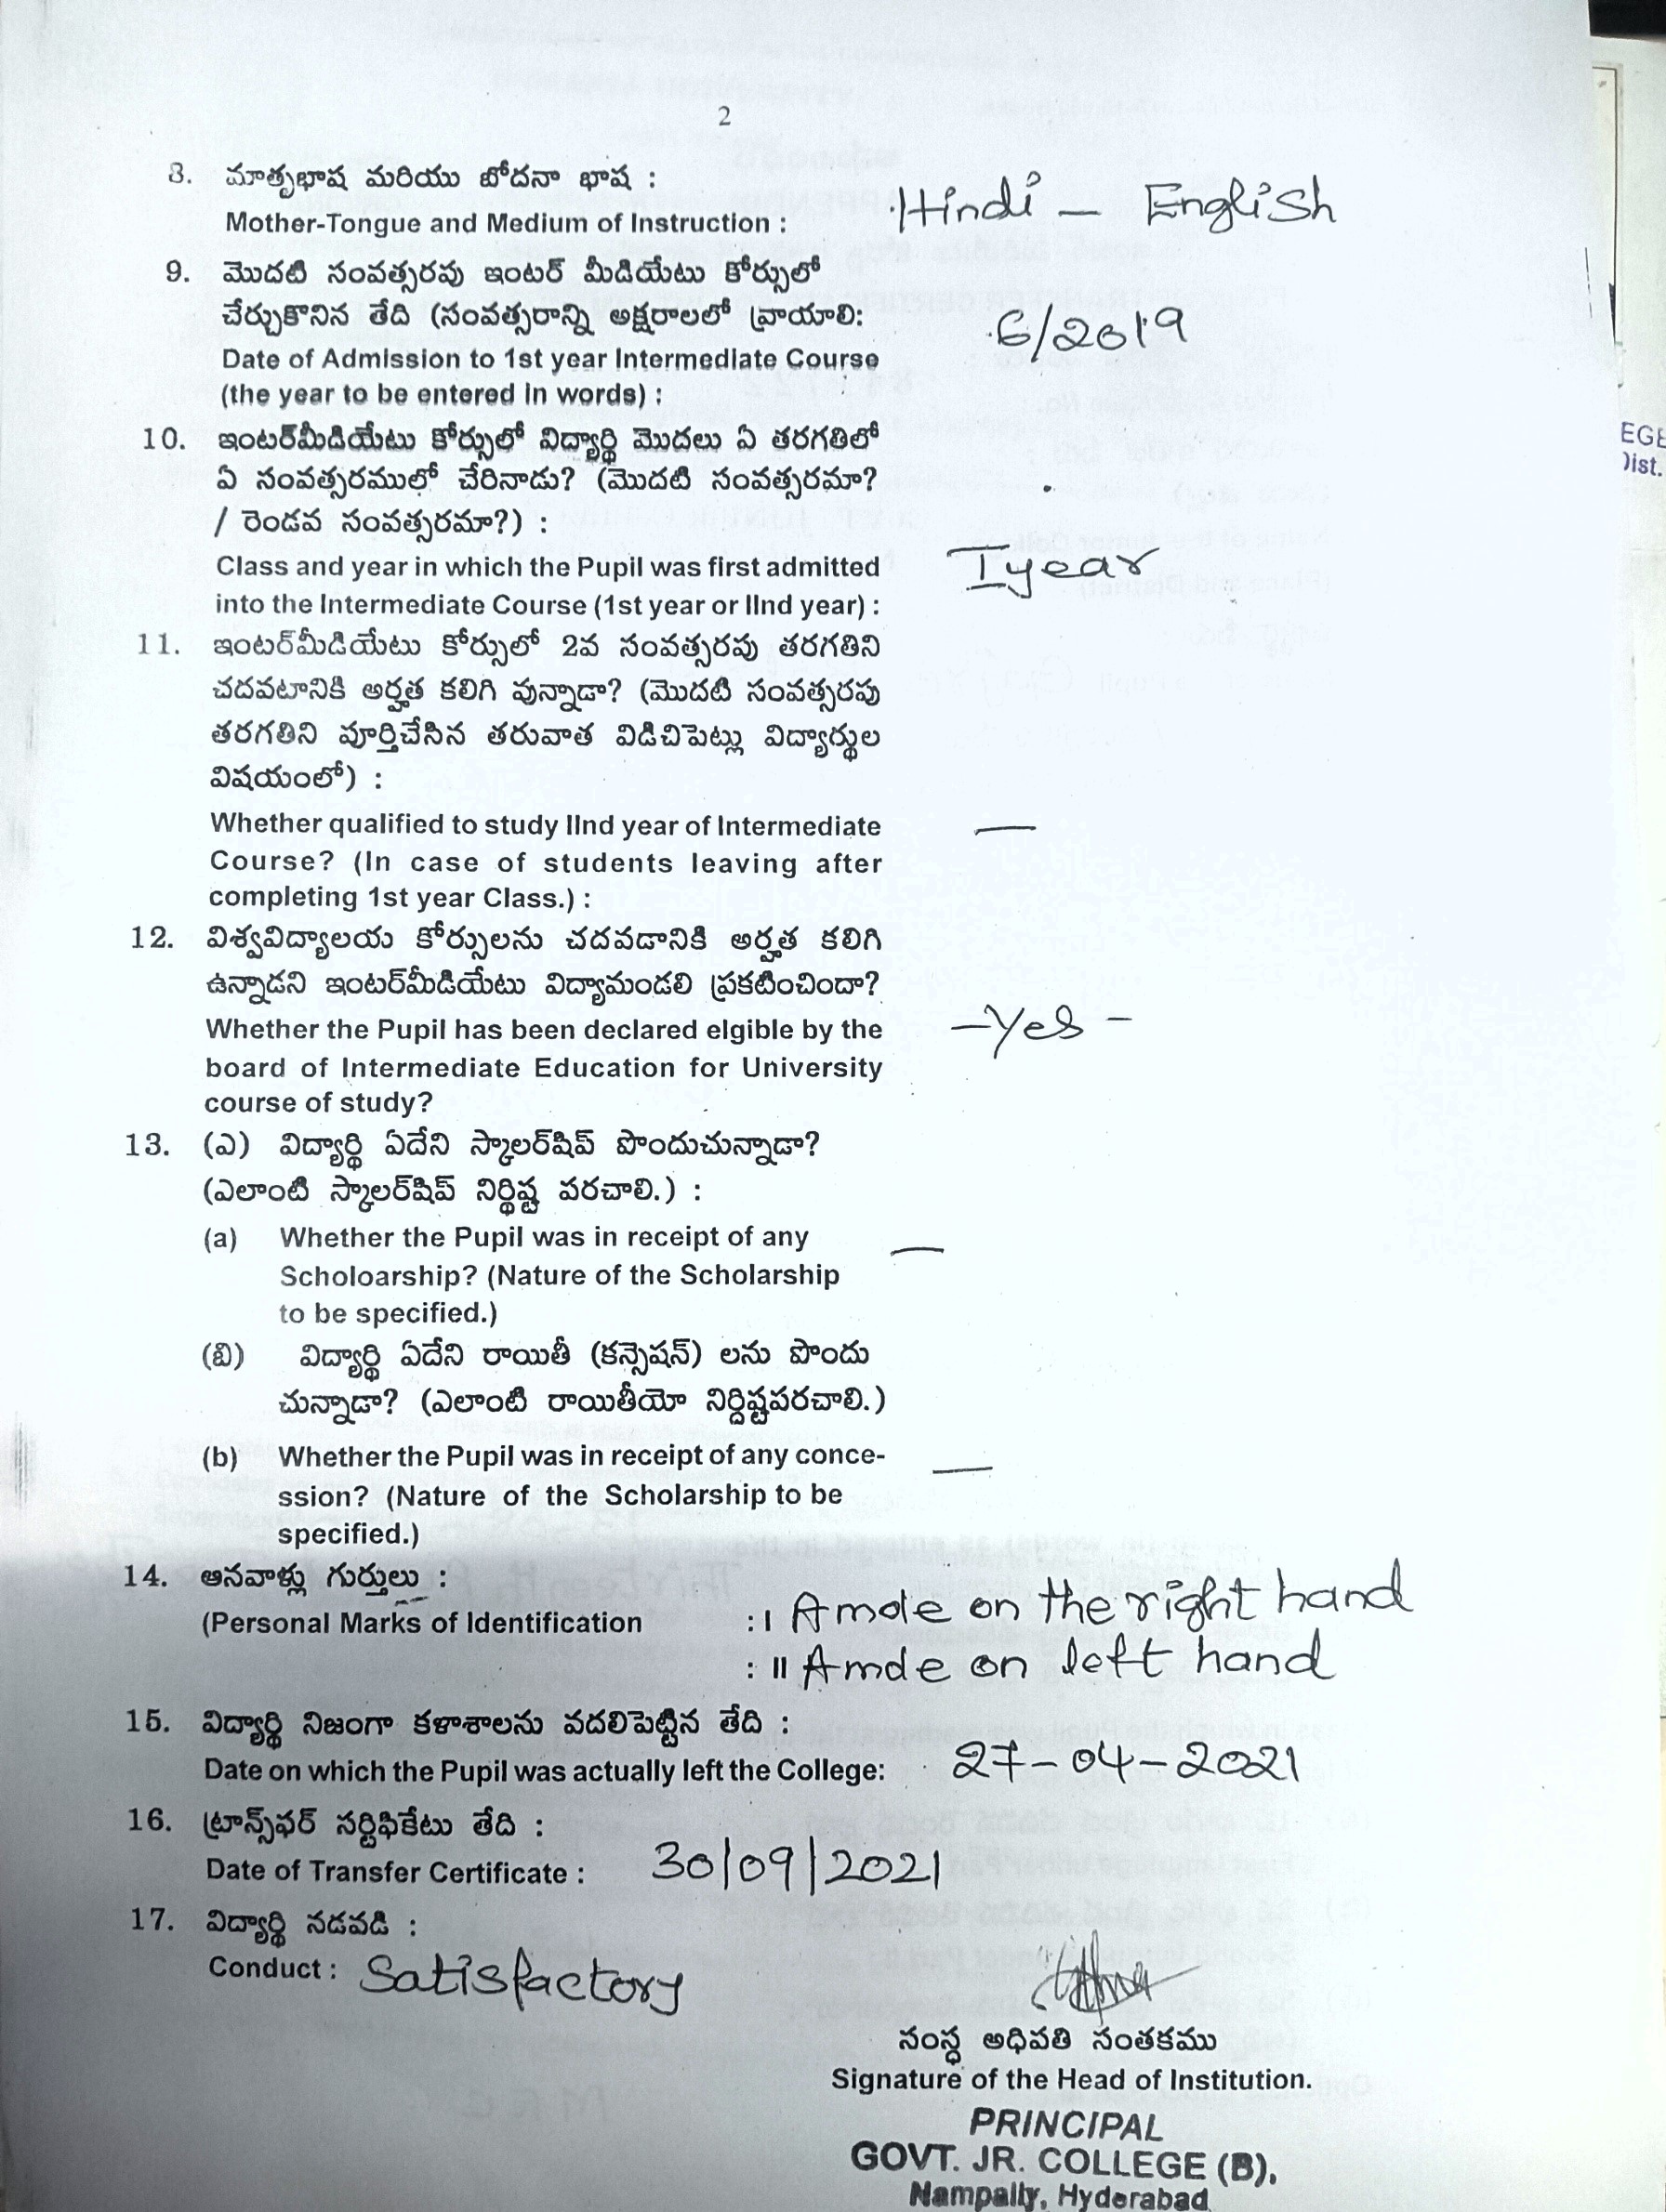 2
8. మాతృభాష మరియు బోదనా భాష :
Mother-Tongue and Medium of Instruction : Hindi – English
9. మొదటి సంవత్సరపు ఇంటర్ మీడియేటు కోర్సులో
చేర్చుకొనిన తేది (సంవత్సరాన్ని అక్షరాలలో వ్రాయాలి:
6/2019
Date of Admission to 1st year Intermediate Course
(the year to be entered in words) :
10. ఇంటర్‌మీడియేటు కోర్సులో విద్యార్థి మొదలు ఏ తరగతిలో
ఏ సంవత్సరములో చేరినాడు? (మొదటి సంవత్సరమా?
/ రెండవ సంవత్సరమా?) :
Class and year in which the Pupil was first admitted I year
into the Intermediate Course (1st year or IInd year) :
11. ఇంటర్‌మీడియేటు కోర్సులో 2వ సంవత్సరపు తరగతిని
చదవటానికి అర్హత కలిగి వున్నాడా? (మొదటి సంవత్సరపు
తరగతిని పూర్తిచేసిన తరువాత విడిచిపెట్లు విద్యార్థుల
విషయంలో) :
Whether qualified to study IInd year of Intermediate —
Course? (In case of students leaving after
completing 1st year Class.) :
12. విశ్వవిద్యాలయ కోర్సులను చదవడానికి అర్హత కలిగి
ఉన్నాడని ఇంటర్‌మీడియేటు విద్యామండలి ప్రకటించిందా?
Whether the Pupil has been declared elgible by the – Yes –
board of Intermediate Education for University
course of study?
13. (ఎ) విద్యార్థి ఏదేని స్కాలర్‌షిప్ పొందుచున్నాడా?
(ఎలాంటి స్కాలర్‌షిప్ నిర్థిష్ట పరచాలి.) :
(a) Whether the Pupil was in receipt of any —
Scholoarship? (Nature of the Scholarship
to be specified.)
(బి) విద్యార్థి ఏదేని రాయితీ (కన్సెషన్) లను పొందు
చున్నాడా? (ఎలాంటి రాయితీయో నిర్దిష్టపరచాలి.)
(b) Whether the Pupil was in receipt of any conce- —
ssion? (Nature of the Scholarship to be
specified.)
14. ఆనవాళ్లు గుర్తులు :
(Personal Marks of Identification : I A mole on the right hand
: II A mole on left hand
15. విద్యార్థి నిజంగా కళాశాలను వదలిపెట్టిన తేది :
Date on which the Pupil was actually left the College: 27-04-2021
16. ట్రాన్స్‌ఫర్ సర్టిఫికేటు తేది :
Date of Transfer Certificate : 30/09/2021
17. విద్యార్థి నడవడి :
Conduct : Satisfactory
సంస్థ అధిపతి సంతకము
Signature of the Head of Institution.
PRINCIPAL
GOVT. JR. COLLEGE (B),
Nampally, Hyderabad
EGE
Dist.